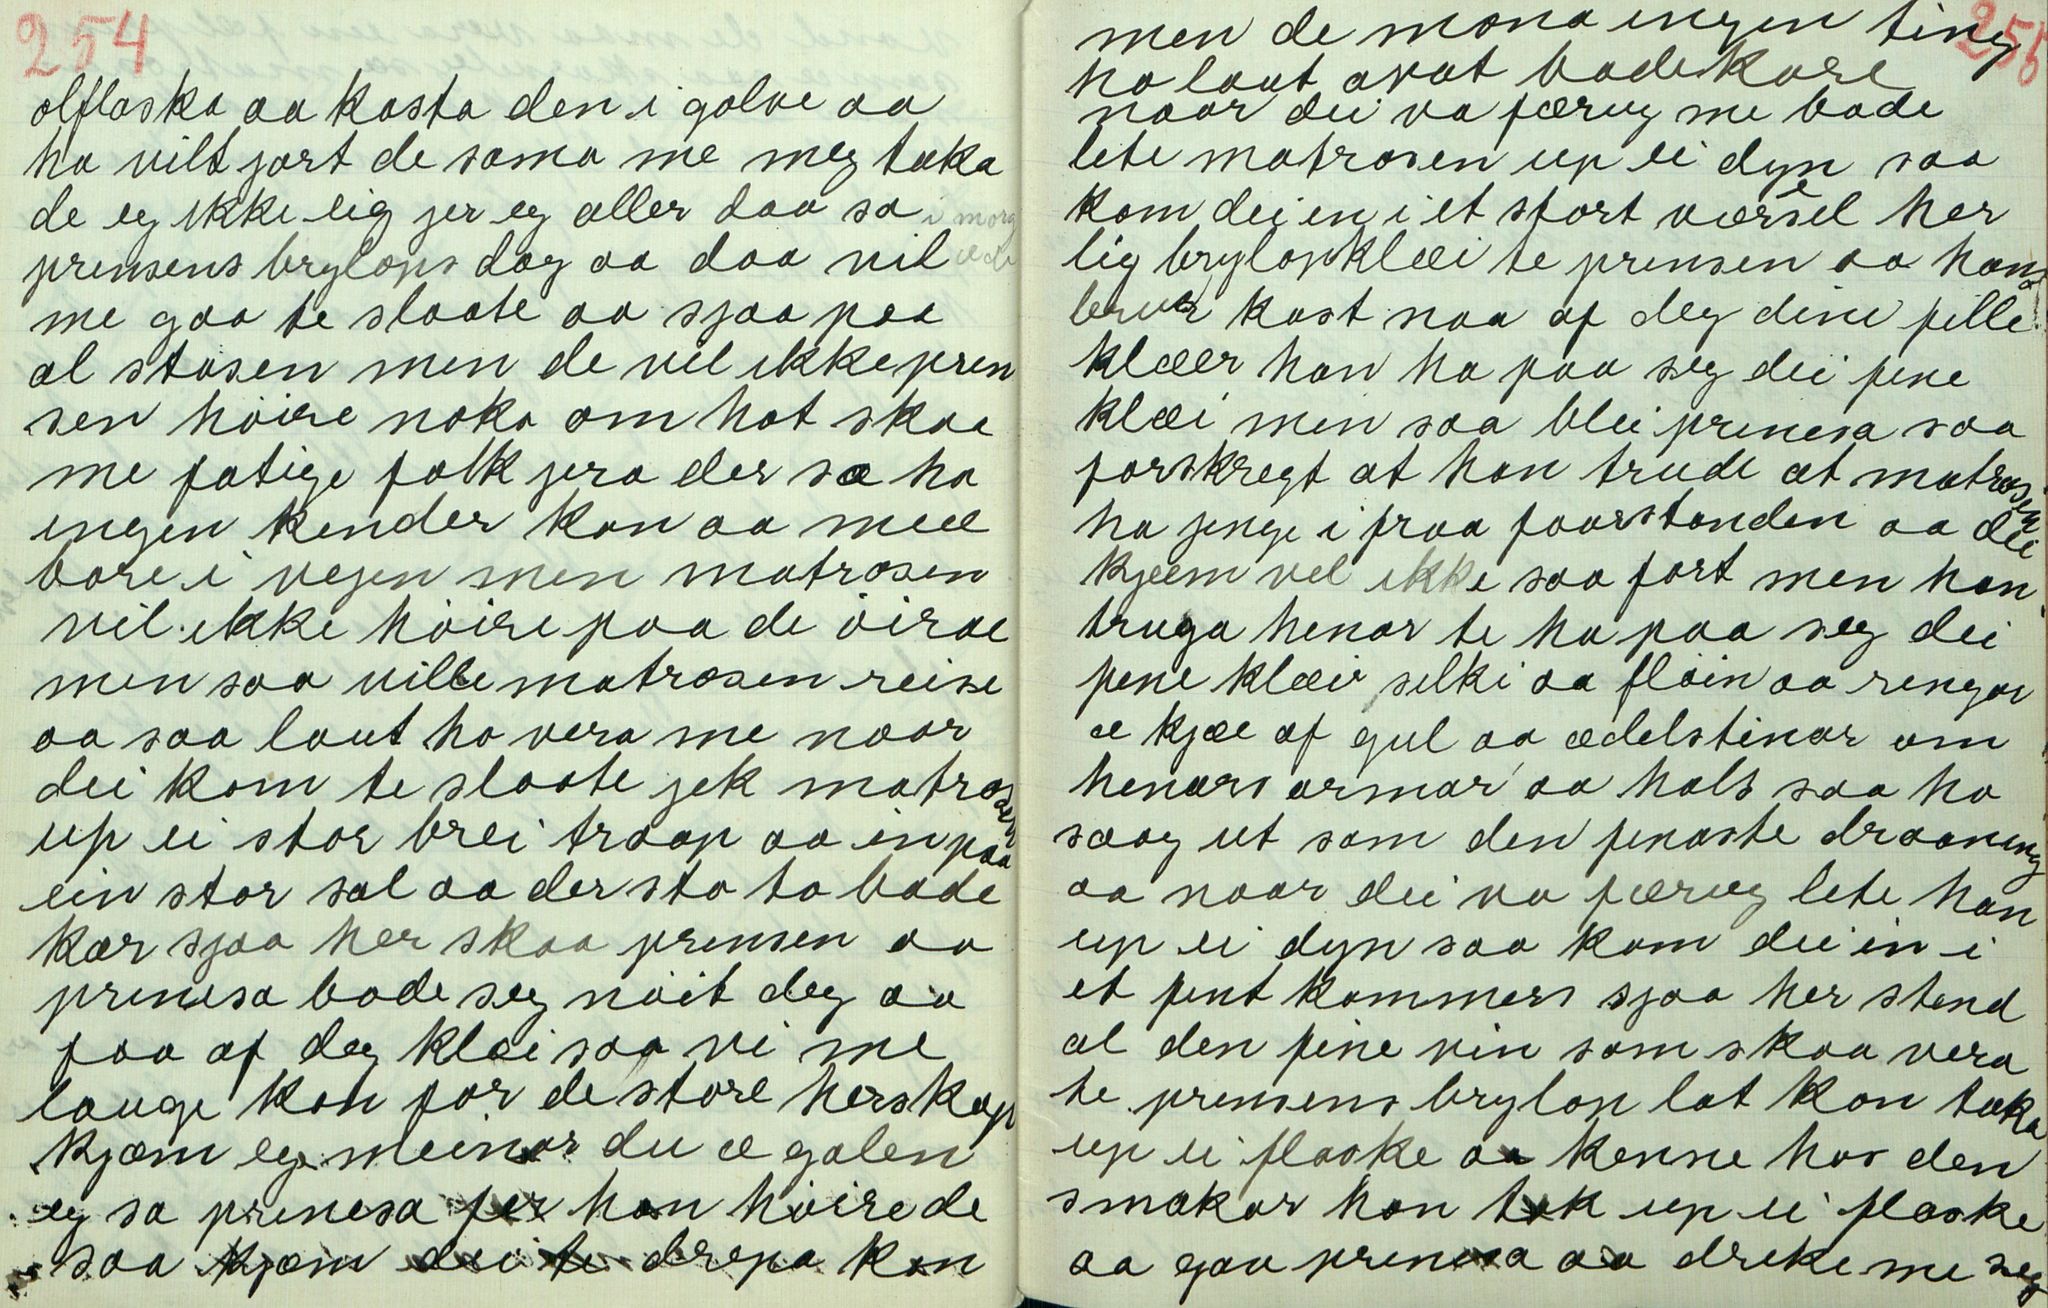 254
olflaska aa kasta den i golve aa
ha vilt jort de sama me meg taka
de eg ikke lig jer eg aller daa sa i morg
prensens brylops dag aa daa vil æ de
me gaa te slaate aa sjaa paa
al stasen men de vil ikke pren
sen höire noka om hat skaa
me fatige folk jera der sa ha
ingen kender kan aa mee
bare i vejen men matrosen
vil ikke höire paa de öirae
men saa ville matrosen reise
aa saa laut ho vera me naar
dei kom te slaate jek matrosen
up ei stor brei traap aa in paa
ein stor sal aa der sto to bade
kær sjaa her skaa prensen aa
prenesa bade seg nöit deg aa
faa af deg klæi saa vi me
lauge kon for de store herskap
kjæm eg meinar du æ galen
eg sa prenesa fer han höire de
saa kjæm dei te drepa kon
255
men de mona ingen ting
ho laut avat bade kare
naar dei va færug me bade
lete matrosen up ei dyn saa
kom dei en i et stort værsel her
lig brylopsklæi te prensen aa hans
brur kast naa af deg dine fille
klæer han ha paa seg dei pene
klæi men saa blei prenesa saa
forskregt at han trude at matrosen
ha jenge i fraa faarstanden aa dei
kjæm vel ikke saa fort men han
truga henar te ha paa seg dei
pene klæir silki aa flöin aa rengar
æ kjæe af gul aa ædelstinar om
henars armar aa hals saa ho
saag ut som den penaste draaneng
aa naar dei va færug lete han
up ei dyn saa kom dei in i
et pent kammers sjaa her stend
al den fine vin som skaa vera
te prensens brylop lat kon taka
up ei flaske aa kenne hos den
smakar han tok up ei flaske
aa gav prenesa aa dreke me seg